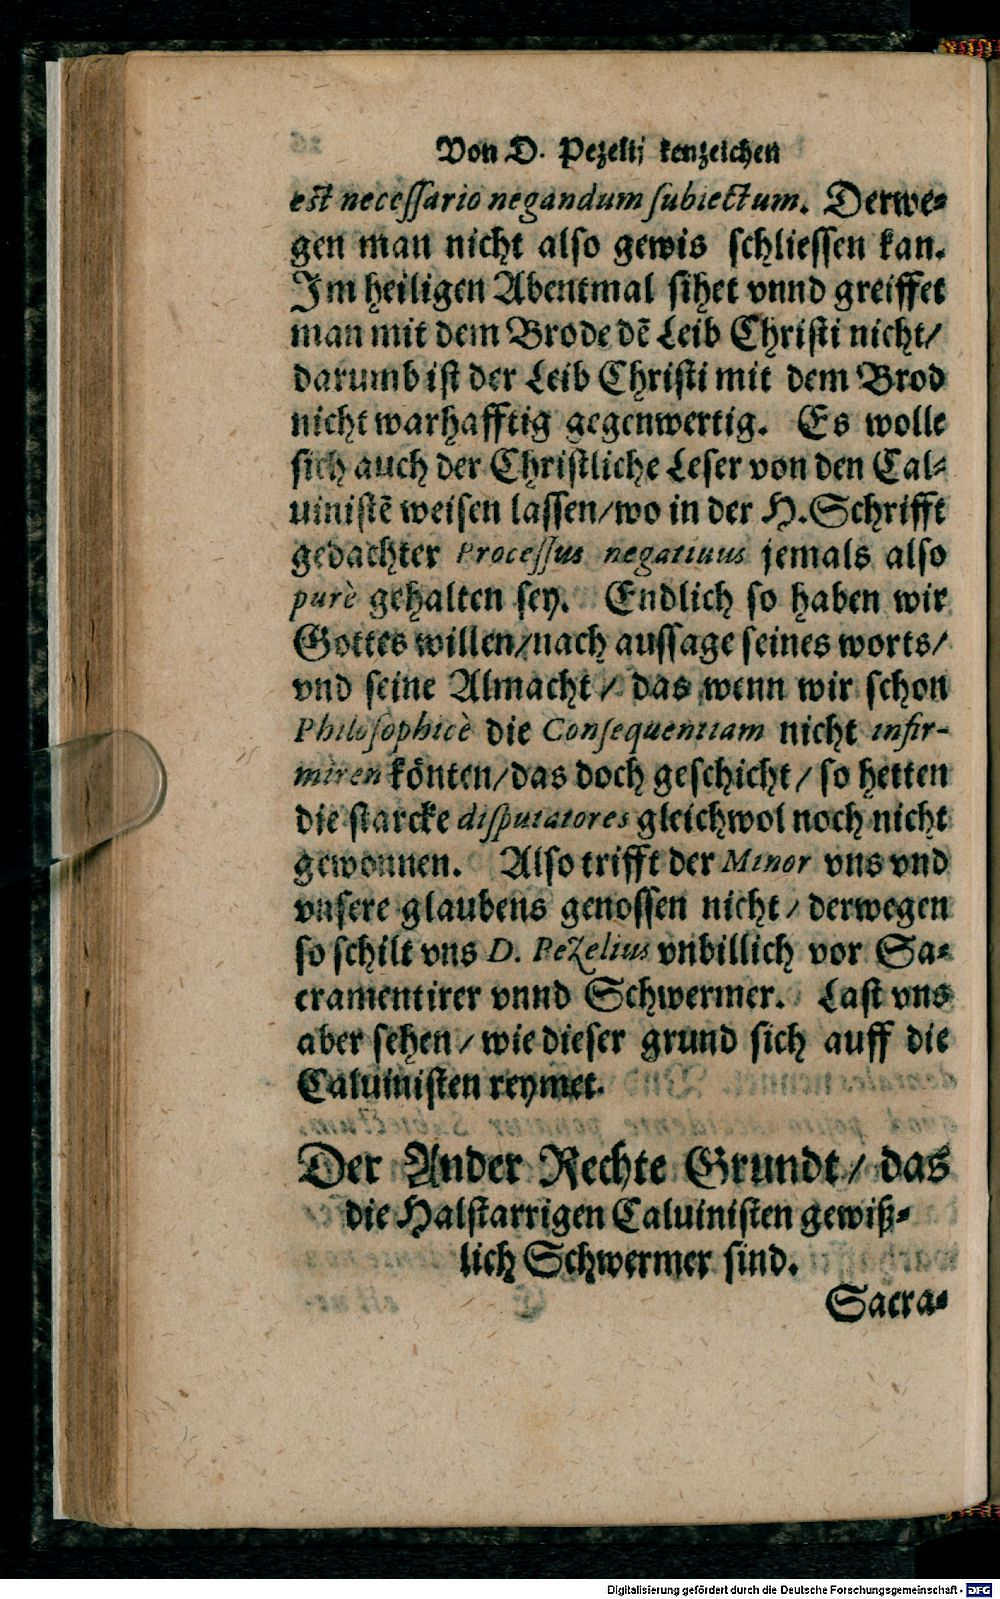 Von D. Pezelij kenzeichen
est necessario negandum subiectum. Derwe-
gen man nicht also gewis schliessen kan.
Im heiligen Abentmal sihet vnnd greiffet
man mit dem Brode dẽ Leib Christi nicht/
darumb ist der Leib Christi mit dem Brod
nicht warhafftig gegenwertig. Es wolle
sich auch der Christliche Leser von den Cal-
uinistẽ weisen lassen/wo in der H. Schrifft
gedachter Processus negatiuus jemals also
purè gehalten sey. Endlich so haben wir
Gottes willen/nach aussage seines worts/
vnd seine Almacht/ das wenn wir schon
Philosophicè die Consequentiam nicht infir-
miren könten/das doch geschicht/ so hetten
die starcke disputatores gleichwol noch nicht
gewonnen. Also trifft der Minor vns vnd
vnsere glaubens genossen nicht/ derwegen
so schilt vns D. Pezelius vnbillich vor Sa-
cramentirer vnnd Schwermer. Last vns
aber sehen/ wie dieser grund sich auff die
Caluinisten reymet.
Der Ander Rechte Grundt/ das
die Halstarrigen Caluinisten gewiß-
lich Schwermer sind.
Sacra-
Digitalisierung gefördert durch die Deutsche Forschungsgemeinschaft - DFG